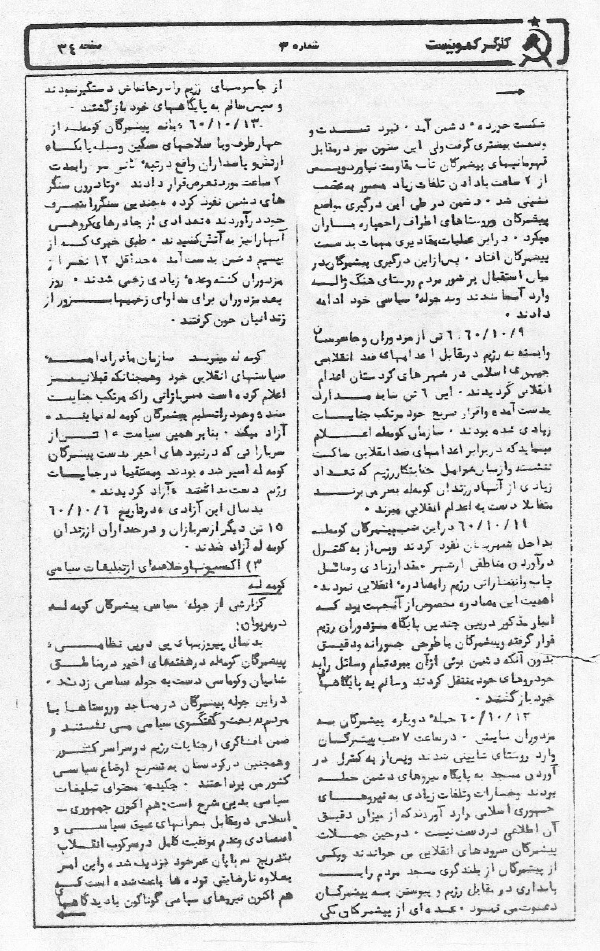 کارگر کمونیست
شماره ۳
صفحه ۳٤
شکست خورده دشمن آمد ۰ نبرد شدت و
وسعت بیشتری گرفت ولی این ستون نیز در مقابل
قهرمانیهای پیشمرگان تاب مقاومت نیاورد و پس
از ۲ ساعت با دادن تلفات زیاد مجبور به عقب
نشینی شد ۰ دشمن در طی این درگیری مواضع
پیشمرگان و روستاهای اطراف را خمپاره باران
میکرد ۰ در این عملیات مقادیری مهمات بدست
پیشمرگان افتاد ۰ پس از این درگیری پیشمرگان در
میان استقبال پر شور مردم روستای هنگ ژاله
وارد آنجا شدند و به جوله سیاسی خود ادامه
دادند ۰
۶۰/۱۰/۹ : ۶ تن از مزدوران و جاسوسان
وابسته به رژیم در مقابل اعدامهای ضد انقلابی
جمهوری اسلامی در شهرهای کردستان اعدام
انقلابی گردیدند ۰ این ۶ تن بنا به مدارک
بدست آمده و اقرار صریح خود مرتکب جنایات
زیادی شده بودند ۰ سازمان کومه‌له اعلام
مینماید که در برابر اعدامهای ضد انقلابی ساکت
ننشسته و از میان عوامل جنایتکار رژیم که تعداد
زیادی از آنها در زندان کومه‌له بسر می برند
متقابلا دست به اعدام انقلابی میزند ۰
۶۰/۱۰/۱۱ در این شب پیشمرگان کومه‌له
بداخل شهر بانه نفوذ کردند و پس از به کنترل
درآوردن مناطقی از شهر مقدار زیادی وسائل
چاپ و انتشاراتی رژیم را مصادره انقلابی نمودند ۰
اهمیت این مصادره مخصوص از آنجهت بود که
انبار مذکور در بین چندین پایگاه مزدوران رژیم
قرار گرفته و پیشمرگان با طرحی جسورانه و دقیق
بدون آنکه دشمن بوئی از آن ببرد تمام وسائل را با
خودروهای خود منتقل کردند و سالم به پایگاههای
خود بازگشتند ۰
۶۰/۱۰/۱۲ حمله دوباره پیشمرگان به
مزدوران شایعش ۰ در ساعت ۷ شب پیشمرگان
وارد روستای شایعش شدند و پس از به کنترل در
آوردن مسجد به پایگاه نیروهای دشمن حمله
بردند و خسارات و تلفات زیادی به نیروهای
جمهوری اسلامی وارد آوردند که از میزان دقیق
آن اطلاعی در دست نیست ۰ در حین حملات
پیشمرگان سرودهای انقلابی می خواندند و یکی
از پیشمرگان از بلندگوی مسجد مردم را به
پایداری در مقابل رژیم و پیوستن به پیشمرگان
دعوت می نمود ۰ عده ای از پیشمرگان یکی
از جاسوسهای رژیم را در خانه‌اش دستگیر نمودند
و سپس سالم به پایگاههای خود بازگشتند ۰
۶۰/۱۰/۱۳ ۰ بانه پیشمرگان کومه‌له از
چهار طرف و با سلاحهای سنگین و سبک پایگاه
ارتش و پاسداران واقع در تپه را بمدت
۲ ساعت مورد تعرض قرار دادند و تا درون سنگر
های دشمن نفوذ کرده ۰ چندین سنگر را بتصرف
خود درآوردند ۰ تعدادی از چادرهای گروهی
آنها را نیز به آتش کشیدند ۰ طبق خبری که از
بیسیم دشمن بدست آمده حداقل ۱۲ نفر از
مزدوران کشته و عده زیادی زخمی شدند ۰ روز
بعد مزدوران برای مداوای زخمیها بزور از
زندانیان خون گرفتند ۰
کومه له مینویسد سازمان ما در ادامه
سیاستهای انقلابی خود و همچنانکه قبلا نیز
اعلام کرده است ۰ سربازانی را که مرتکب جنایت
نشده و خود را تسلیم پیشمرگان کومه له نمایند
آزاد میکند ۰ بنا بر همین سیاست ۱۰ تن از
سربازانی که در نبردهای اخیر بدست پیشمرگان
کومه له اسیر شده بودند و مستقیما در جنایات
رژیم دست نداشتند ۰ آزاد گردیدند ۰
بدنبال این آزادی ۰ در تاریخ ۶۰/۱۰/۶
۱۵ تن دیگر از سربازان و درجداران از زندان
کومه له آزاد شدند ۰
۳) آکسیونها و خلاصه‌ای از تبلیغات سیاسی
کومه له
گزارشی از جوله سیاسی پیشمرگان کومه له
در مریوان :
بدنبال پیروزیهای پی درپی نظامی ۰
پیشمرگان کومه‌له در هفته‌های اخیر در مناطق
شامیان و کوماسی دست به جوله سیاسی زدند ۰
در این جوله پیشمرگان در مساجد و روستاها با
مردم به بحث و گفتگوی سیاسی می نشستند و
ضمن افشاگری از جنایات رژیم در سراسر کشور
و همچنین در کردستان به تشریح اوضاع سیاسی
کشور می پرداختند ۰ چکیده محتوای تبلیغات
سیاسی بدین شرح است : هم اکنون جمهوری
اسلامی در مقابل بحرانهای عمیق سیاسی و
اقتصادی و عدم موفقیت کامل در سرکوب انقلاب
بتدریج به پایان عمر خود نزدیک شده و این امر
بعلاوه نارضایتی توده ها باعث شده است که
هم اکنون نیروهای سیاسی گوناگون با دیدگاههای